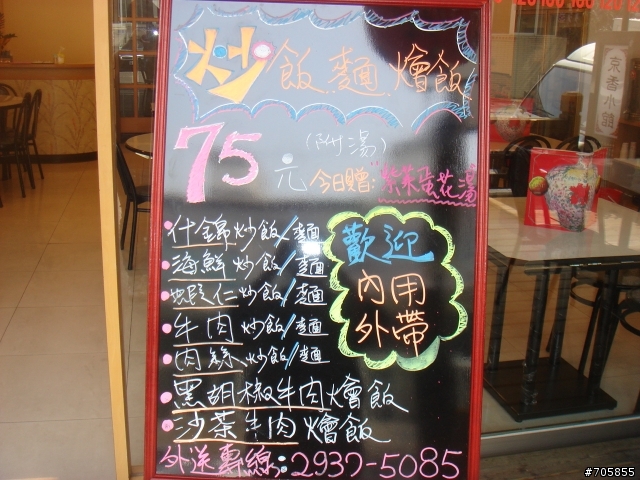 炒飯麵燴飯
75元(附湯)
今日贈:紫菜蛋花湯
什錦炒飯/麵
海鮮炒飯/麵
蝦仁炒飯/麵
牛肉炒飯/麵
肉絲炒飯/麵
黑胡椒牛肉燴飯
沙茶牛肉燴飯
歡迎
內用
外帶
外送專線:2937-5085
京香小館
#705855